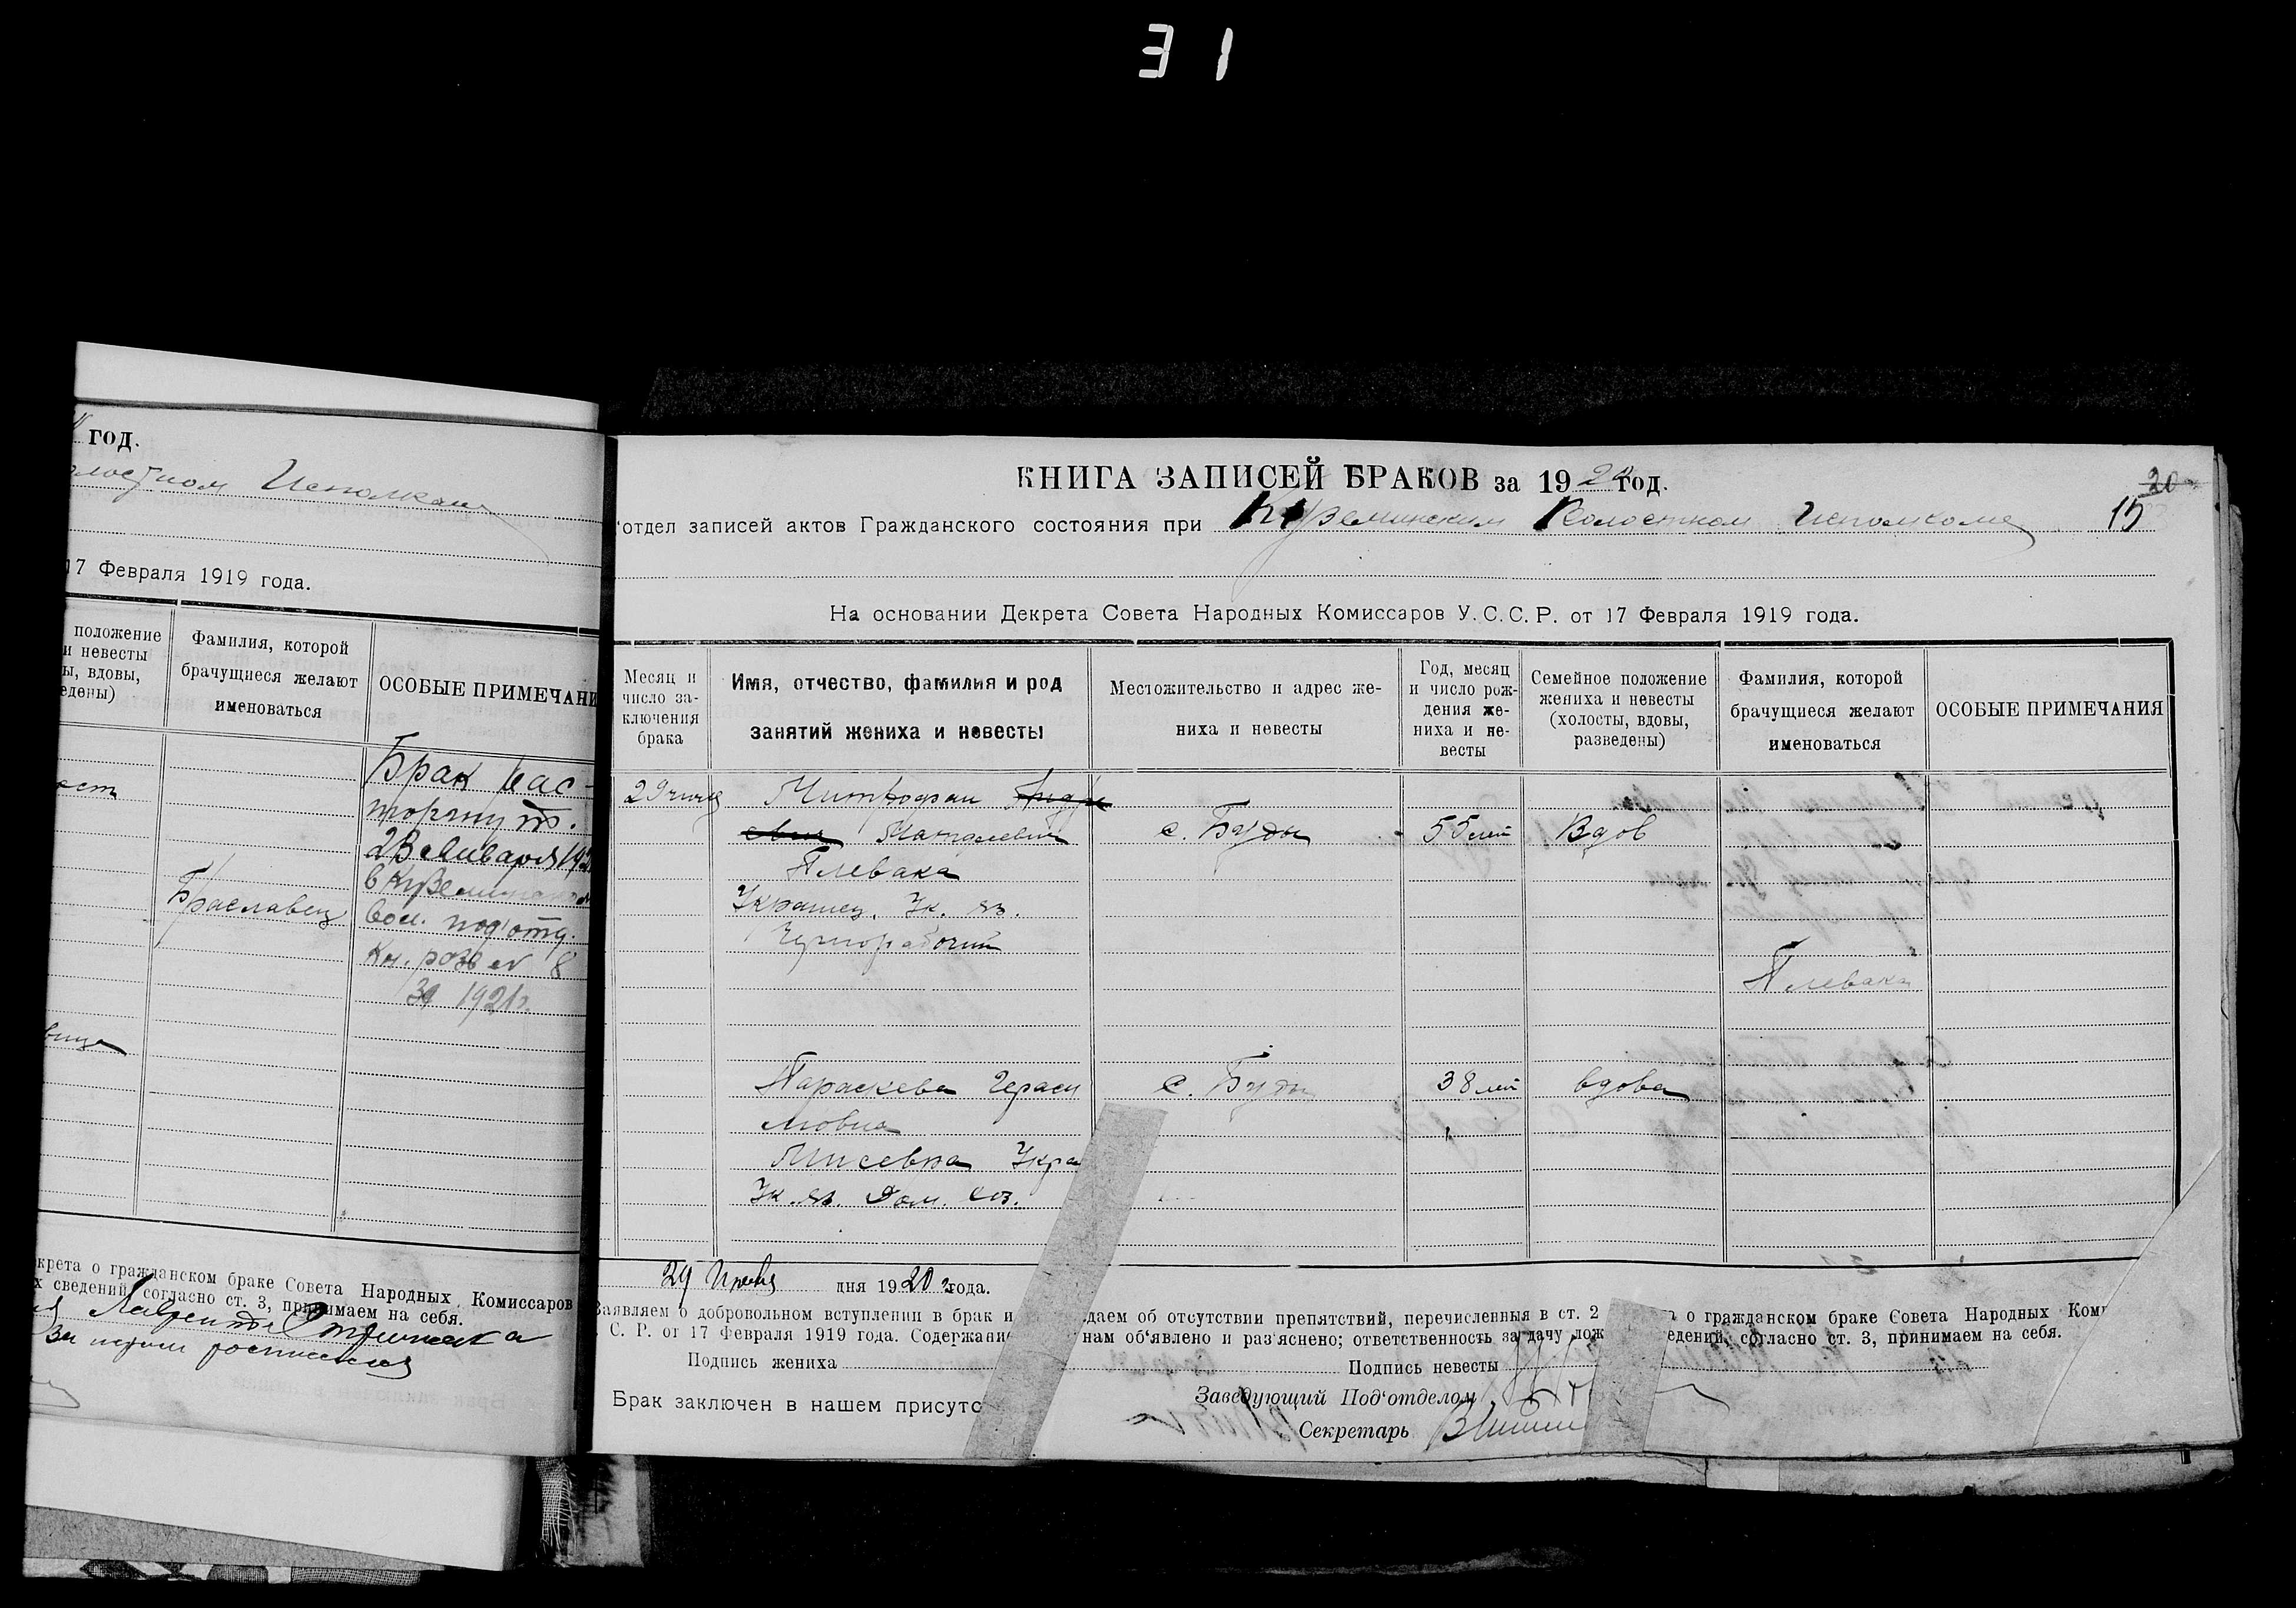 31
год.
Исполкоме
17 Февраля 1919 года.
положение
и невесты
ы, вдовы,
едены)
Фамилия, которой
брачущиеся желают
именоваться
ОСОБЫЕ ПРИМЕЧАНИ
Брак рас-
торгнут.
23 Января 192
в
Вол. под'отд.
Кн. розв № 8
31 1921г.
Браславец
вица
крета о гражданском браке Совета Народных Комиссаров
х сведений, согласно ст. 3, принимаем на себя.
КНИГА ЗАПИСЕЙ БРАКОВ за 1920 год.
20
отдел записей актов Гражданского состояния при Куземинским Волостном Исполкоме 15
На основании Декрета Совета Народных Комиссаров У.С.С.Р. от 17 Февраля 1919 года.
Месяц и
число за-
ключения
брака
Имя, отчество, фамилия и род
занятий жениха и невесты
Местожительство и адрес же-
ниха и невесты
Год, месяц
и число рож-
дения же-
ниха и не-
весты
Семейное положение
жениха и невесты
(холосты, вдовы,
разведены)
Фамилия, которой
брачущиеся желают
именоваться
ОСОБЫЕ ПРИМЕЧАНИЯ
29 Митрофан
с. Буды 55 лет Вдов
Плевака
Украинец, Ук. яз.
Чернорабочий
Плевака
Параскева Гераси
мовна
с. Буды 38 лет вдова
Укра
Ук. яз. Дом. хоз.
29 Июня дня 1920 г года.
Заявляем о добровольном вступлении в брак и
даем об отсутствии препятствий, перечисленныя в ст. 2
о гражданском браке Совета Народных Ком
С. Р. от 17 Февраля 1919 года. Содержание
нам об'явлено и раз'яснено; ответственность за дачу лож
едений, согласно ст. 3, принимаем на себя.
Подпись жениха
Подпись невесты
Брак заключен в нашем присутс
Заведующий Под'отделом
Секретарь